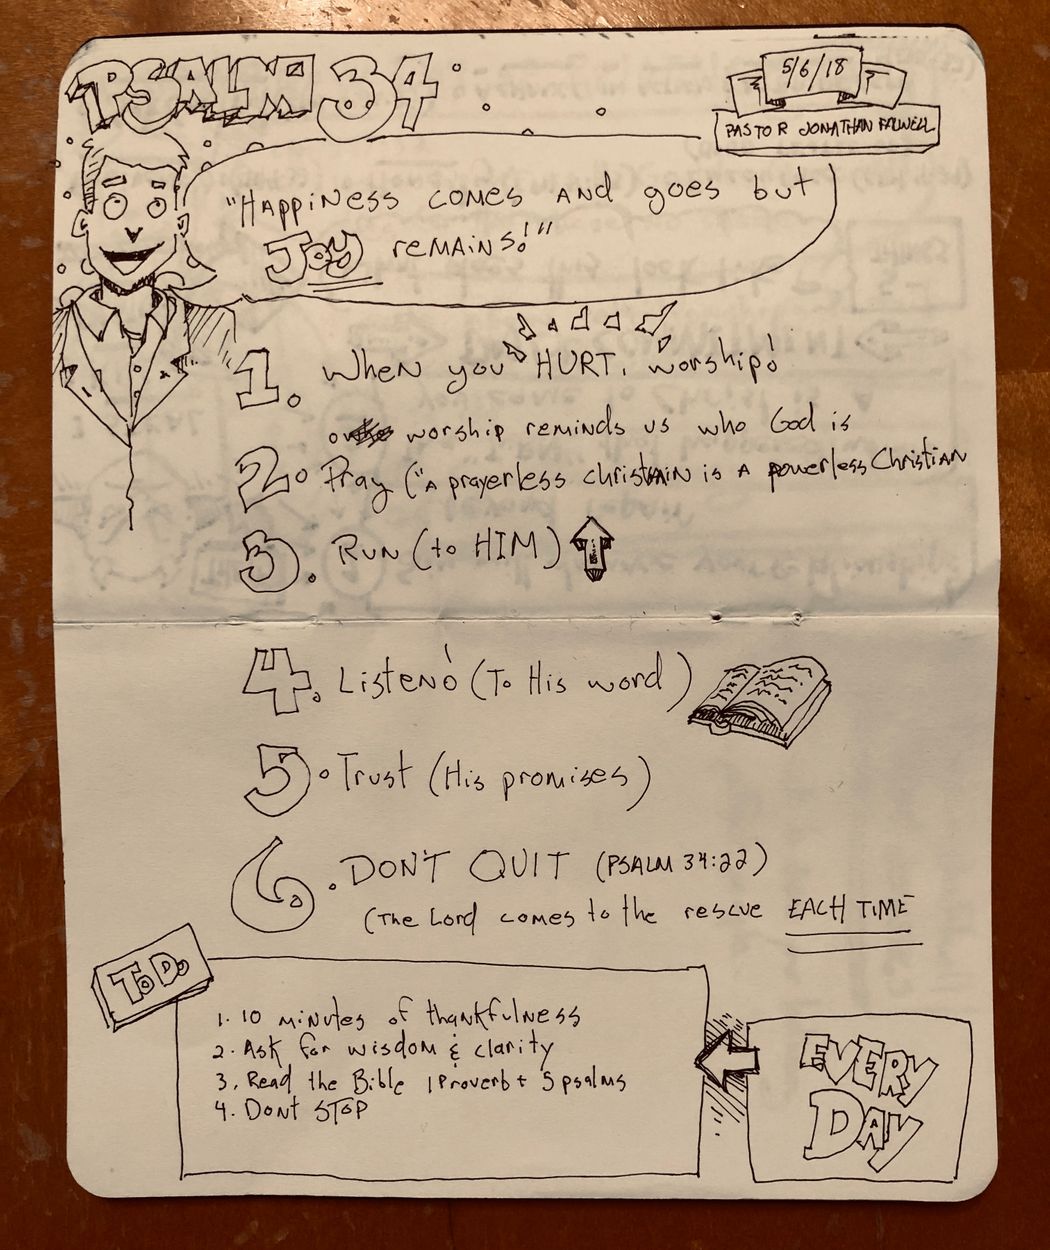 PSALM 34
5/6/18
PASTOR JONATHAN FALWELL
"HAPPINESS COMES AND goes but
Joy REMAINS!"
1. When you HURT, worship!
worship reminds us who God is
2. Pray ("A prayerless christain is A powerless Christian
3. RUN (to HIM)
4. Listen! (To His word)
5. Trust (His promises)
6. DONT QUIT (PSALM 34:22)
(The Lord comes to the rescue EACH TIME
To Do
1. 10 minutes of thankfulness
2. Ask for wisdom & clarity
3. Read the Bible 1 Proverb + 5 psalms
4. Dont STOP
EVERY
DAY